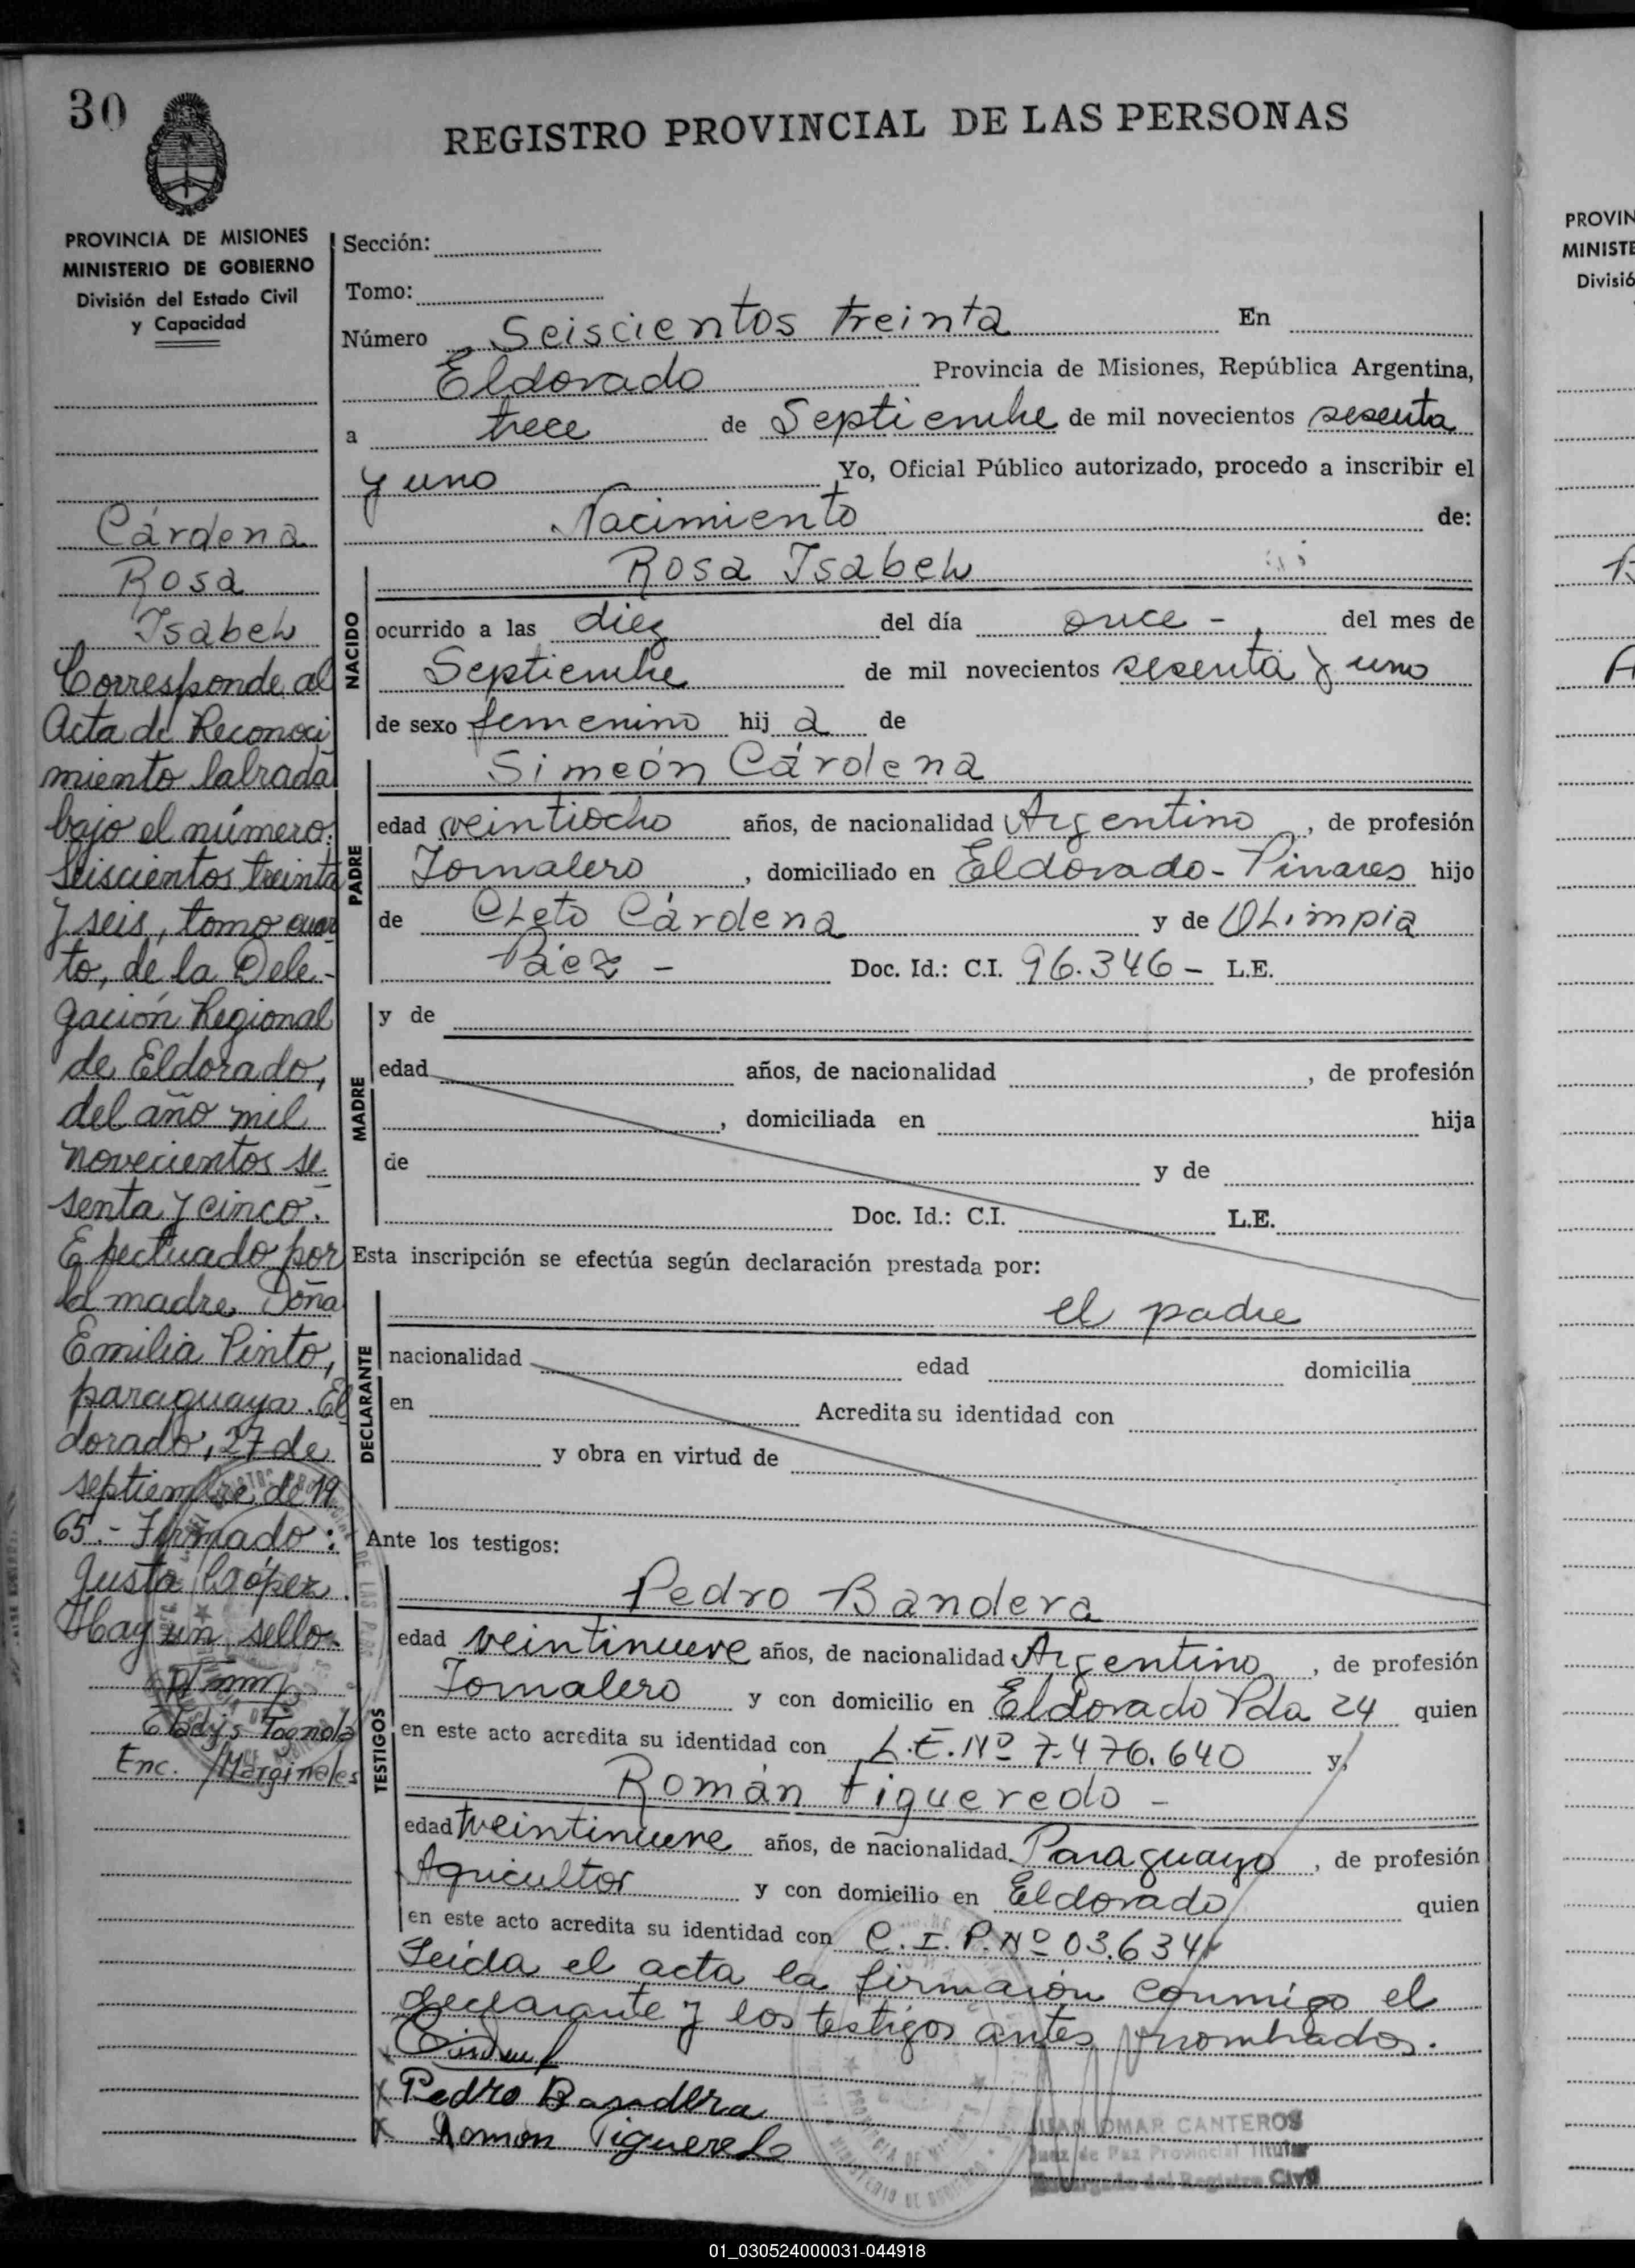 30
REGISTRO PROVINCIAL DE LAS PERSONAS
PROVINCIA DE MISIONES
MINISTERIO DE GOBIERNO
División del Estado Civil
y Capacidad
Cárdena
Rosa
Isabel
Corresponde al
Acta de Reconoci
miento labrada
bajo el número:
Seiscientos treinta
y seis, tomo cuar
to, de la Dele-
gación Regional
de Eldorado,
del año mil
novecientos se
senta y cinco.
Efectuado por
la madre Doña
Emilia Pinto,
paraguaya. El
dorado, 27 de
septiembre de 19
65.- Firmado:
Justa López.
Hay un sello.
Enc. /Marginales
Sección:
Tomo:
Número Seiscientos treinta En
Eldorado Provincia de Misiones, República Argentina,
a trece de Septiembre de mil novecientos sesenta
y uno Yo, Oficial Público autorizado, procedo a inscribir el
Nacimiento de:
NACIDO
Rosa Isabel
ocurrido a las diez del día once - del mes de
Septiembre de mil novecientos sesenta y uno
de sexo femenino hij a de
PADRE
Simeón Cárdena
edad veintiocho años, de nacionalidad Argentino, de profesión
Jornalero, domiciliado en Eldorado - Pinares hijo
de Cleto Cárdena y de Olimpia
Páez - Doc. Id.: C.I. 96.346 - L.E.
MADRE
y de
edad años, de nacionalidad , de profesión
, domiciliada en hija
de y de
Doc. Id.: C.I. L.E.
Esta inscripción se efectúa según declaración prestada por:
DECLARANTE
el padre
nacionalidad edad domicilia
en Acredita su identidad con
y obra en virtud de
Ante los testigos:
TESTIGOS
Pedro Bandera
edad veintinueve años, de nacionalidad Argentino, de profesión
Jornalero y con domicilio en Eldorado Pda 24 quien
en este acto acredita su identidad con L.E. Nº 7.476.640 y
Román Figueredo -
edad veintinueve años, de nacionalidad Paraguayo, de profesión
Agricultor y con domicilio en Eldorado quien
en este acto acredita su identidad con C.I.P. Nº 03.634
Leída el acta la firmaron conmigo el
declarante y los testigos antes nombrados.
x Pedro Bandera
x Román Figueredo
JUAN OMAR CANTEROS
Juez de Paz Provincial Titular
Encargado del Registro Civil
PROVIN
MINISTE
Divisió
01_030524000031-044918